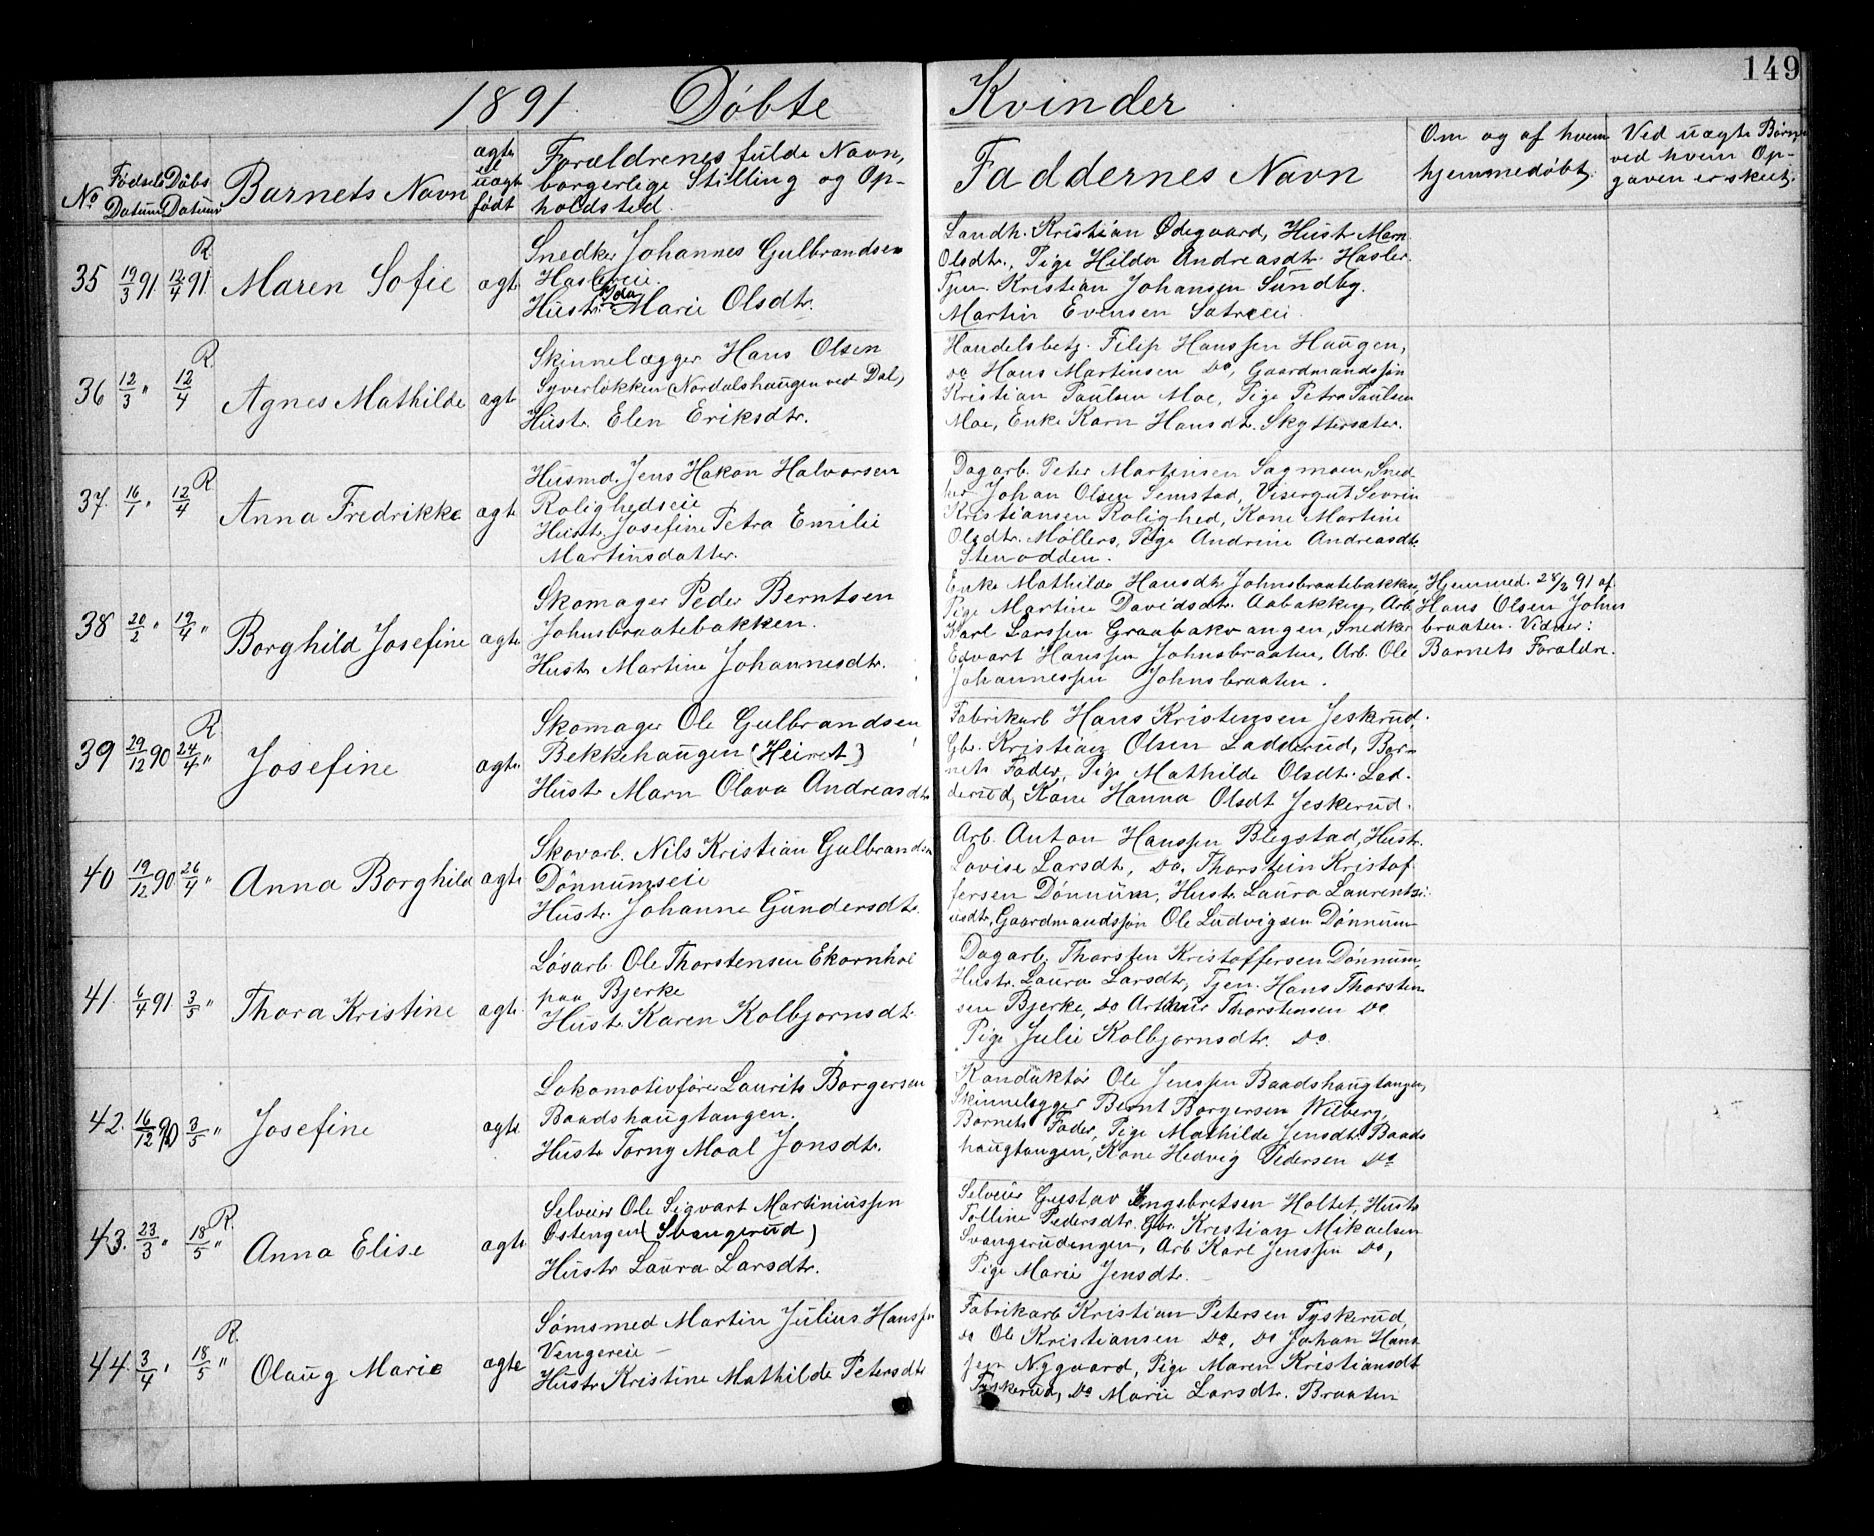 149
1891. Døbte Kvinder
No Fødsels Datum Døbs Datum Barnets Navn ægte el. uægte født Forældrenes fulde Navn, borgerlige Stilling og Opholdsted. Faddernes Navn Om og af hvem hjemmedøbt. Ved uægte Børn, ved hvem Opgaven er skeet.
35 19/3 91 12/4 91. R. Maren Sofie ægte
Snedker Johannes Gulbrandsen
Haslereie.
Hustr. Marie Olsdtr.
Landh. Kristian Ødegaard, Hustr. Marn
Olsdtr., Pige Hilda Andreasdtr. Hasler.
Tjen. Kristian Johansen Sundby.
Martin Evensen Sætreeie.
36 12/3 " 12/4 R. Agnes Mathilde ægte
Skinnelægger Hans Olsen
Syverløkken (Nordalshaugen ved Dal)
Hustr. Elen Eriksdtr.
Handelsbetj. Filip Hanssen Haugen,
do Hans Martinsen Do, Gaardmandssøn
Kristian Paulsen Moe, Pige Petra Paulsen
Moe, Enke Karn Hansdtr. Skyttersæter.
37. 16/1 " 12/4 R Anna Fredrikke ægte
Husmd. Jens Hakon Halvorsen
Rolighedseie
Hustr. Josefine Petra Emilie
Martinsdatter.
Dagarb. Peter Martinsen Sagmoen, Sned
ker Johan Olsen Semstad, Visergut Sevrin
Kristiansen Rolighed, Kone Martine
Olsdtr. Møllers, Pige Andrine Andreasdtr.
Stenodden.
38 20/2 " 19/4 " Borghild Josefine ægte
Skomager Peder Berntsen
Johnsbraatebakken.
Hustr. Martine Johannesdtr.
Enke Mathilde Hansdtr. Johnsbraatebakken,
Pige Martine Davidsdtr. Aabakken, Arb.
Karl Larssen Graabakvangen, Snedker
Edvart Hanssen Johnsbraaten, Arb. Ole
Johannessen Johnsbraaten.
Hjemmed. 28/2 91 af
Hans Olsen Johns
braaten. Vidner:
Barnets Forældre.
39 29/12 90 24/4 " R Josefine ægte.
Skomager Ole Gulbrandsen,
Bekkehaugen (Heiret)
Hustr. Marn Olava Andreasdtr.
Fabrikarb Hans Kristensen Jeskerud,
Gbr. Kristian Olsen Ladderud, Bar-
nets Fader, Pige Mathilde Olsdtr. Lad-
derud, Kone Hanna Olsdt Jeskerud.
40 19/12 90 26/4 " Anna Borghild ægte
Skovarb. Nils Kristian Gulbrandsen
Dønnumseie
Hustr. Johanne Gundersdtr.
Arb. Anton Hanssen Blegstad, Hustr.
Lovise Larsdtr, Do. Thorstein Kristof
fersen Dønnum, Hustr. Laura Laurentsi
usdtr, Gaardmandssøn Ole Ludvigsen Dønnum
41. 6/4 91. 3/5 " Thora Kristine ægte.
Løsarb. Ole Thorstensen Ekornhol
paa Bjerke
Hustr. Karen Kolbjørnsdtr.
Dagarb. Thorsten Kristoffersen Dønnum,
Hustr. Laura Larsdtr, Tjen. Hans Thorsten
sen Bjerke, Do Arthur Thorstensen Do
Pige Julie Kolbjørnsdtr. Do
42. 16/12 90 3/5 " Josefine ægte
Lokomotivfører Laurits Borgersen
Baadshaugtangen.
Hustr. Torny Moal Jonsdtr.
Konduktør Ole Jenssen Baadshaugtangen,
Skinnelægger Bernt Borgersen Wilberg,
Barnets Fader, Pige Mathilde Jensdtr. Baads
haugtangen, Kone Hedvig Pedersen Do
43. 23/3 " 18/5 " R. Anna Elise ægte
Selveier Ole Sigvart Martiniussen
Østengen (Svangerud)
Hustr Laura Larsdtr.
Selveier Gustav Engebretsen Holtet, Hustr
Polline Pedersdtr. Gbr. Kristian Mikaelsen
Svangerudengen, Arb Karl Jenssen Do,
Pige Marie Jensdtr.
44. 3/4 " 18/5 " R. Olaug Marie ægte
Sømsmed Martin Julius Hanssen
Vengereie
Hustr. Kristine Mathilde Petersdtr
Fabrikarb Kristian Petersen Tyskerud,
do Ole Kristiansen Do, Do Johan Hans
sen Nygaard, Pige Maren Kristiansdtr
Tyskerud, Do Marie Larsdtr. Braaten